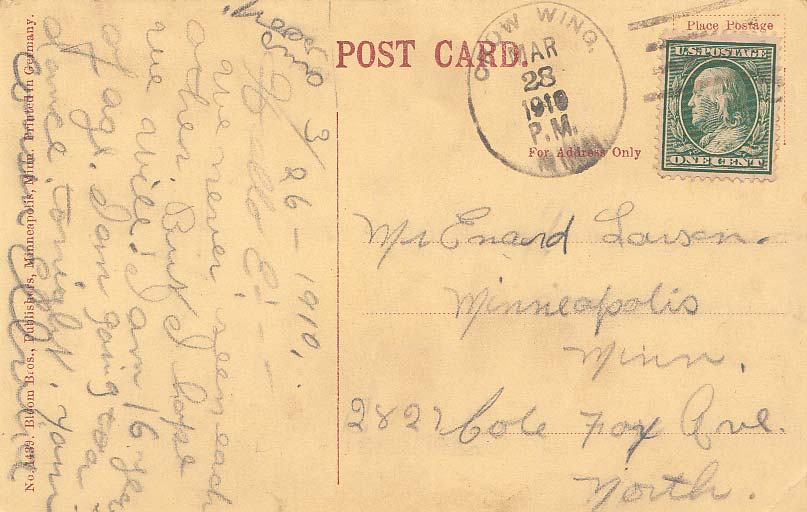 POST CARD.
Place Postage
For Address Only
CROW WING,
MAR
28
1910
P.M.
MINN.
U.S. POSTAGE
ONE CENT
Mr Enard Larsen.
Minneapolis
Minn.
2827 Cole Fax Ave.
North.
3/26-1910.
Hello E---
we never seen each
other. But I hope
we will. I am 16 year
of age. I am going too a
dance tonight.
No. 1439. Bloom Bros., Publishers, Minneapolis, Minn. Printed in Germany.